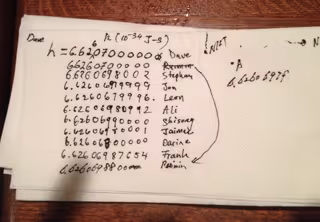 Dave h (10^-34 J-s)
h = 6.62607000000 Dave
6.62607000000
6.6260698002 Stephan
6.6260699999 Jon
6.6260679996 Leon
6.62606980992 Ali
6.62606990000 Shisong
6.6260698001 Jaimie
6.6260680000 Darine
6.62606987654 Frank
6.62606988000 Robin
NIST
• A
6.62606979